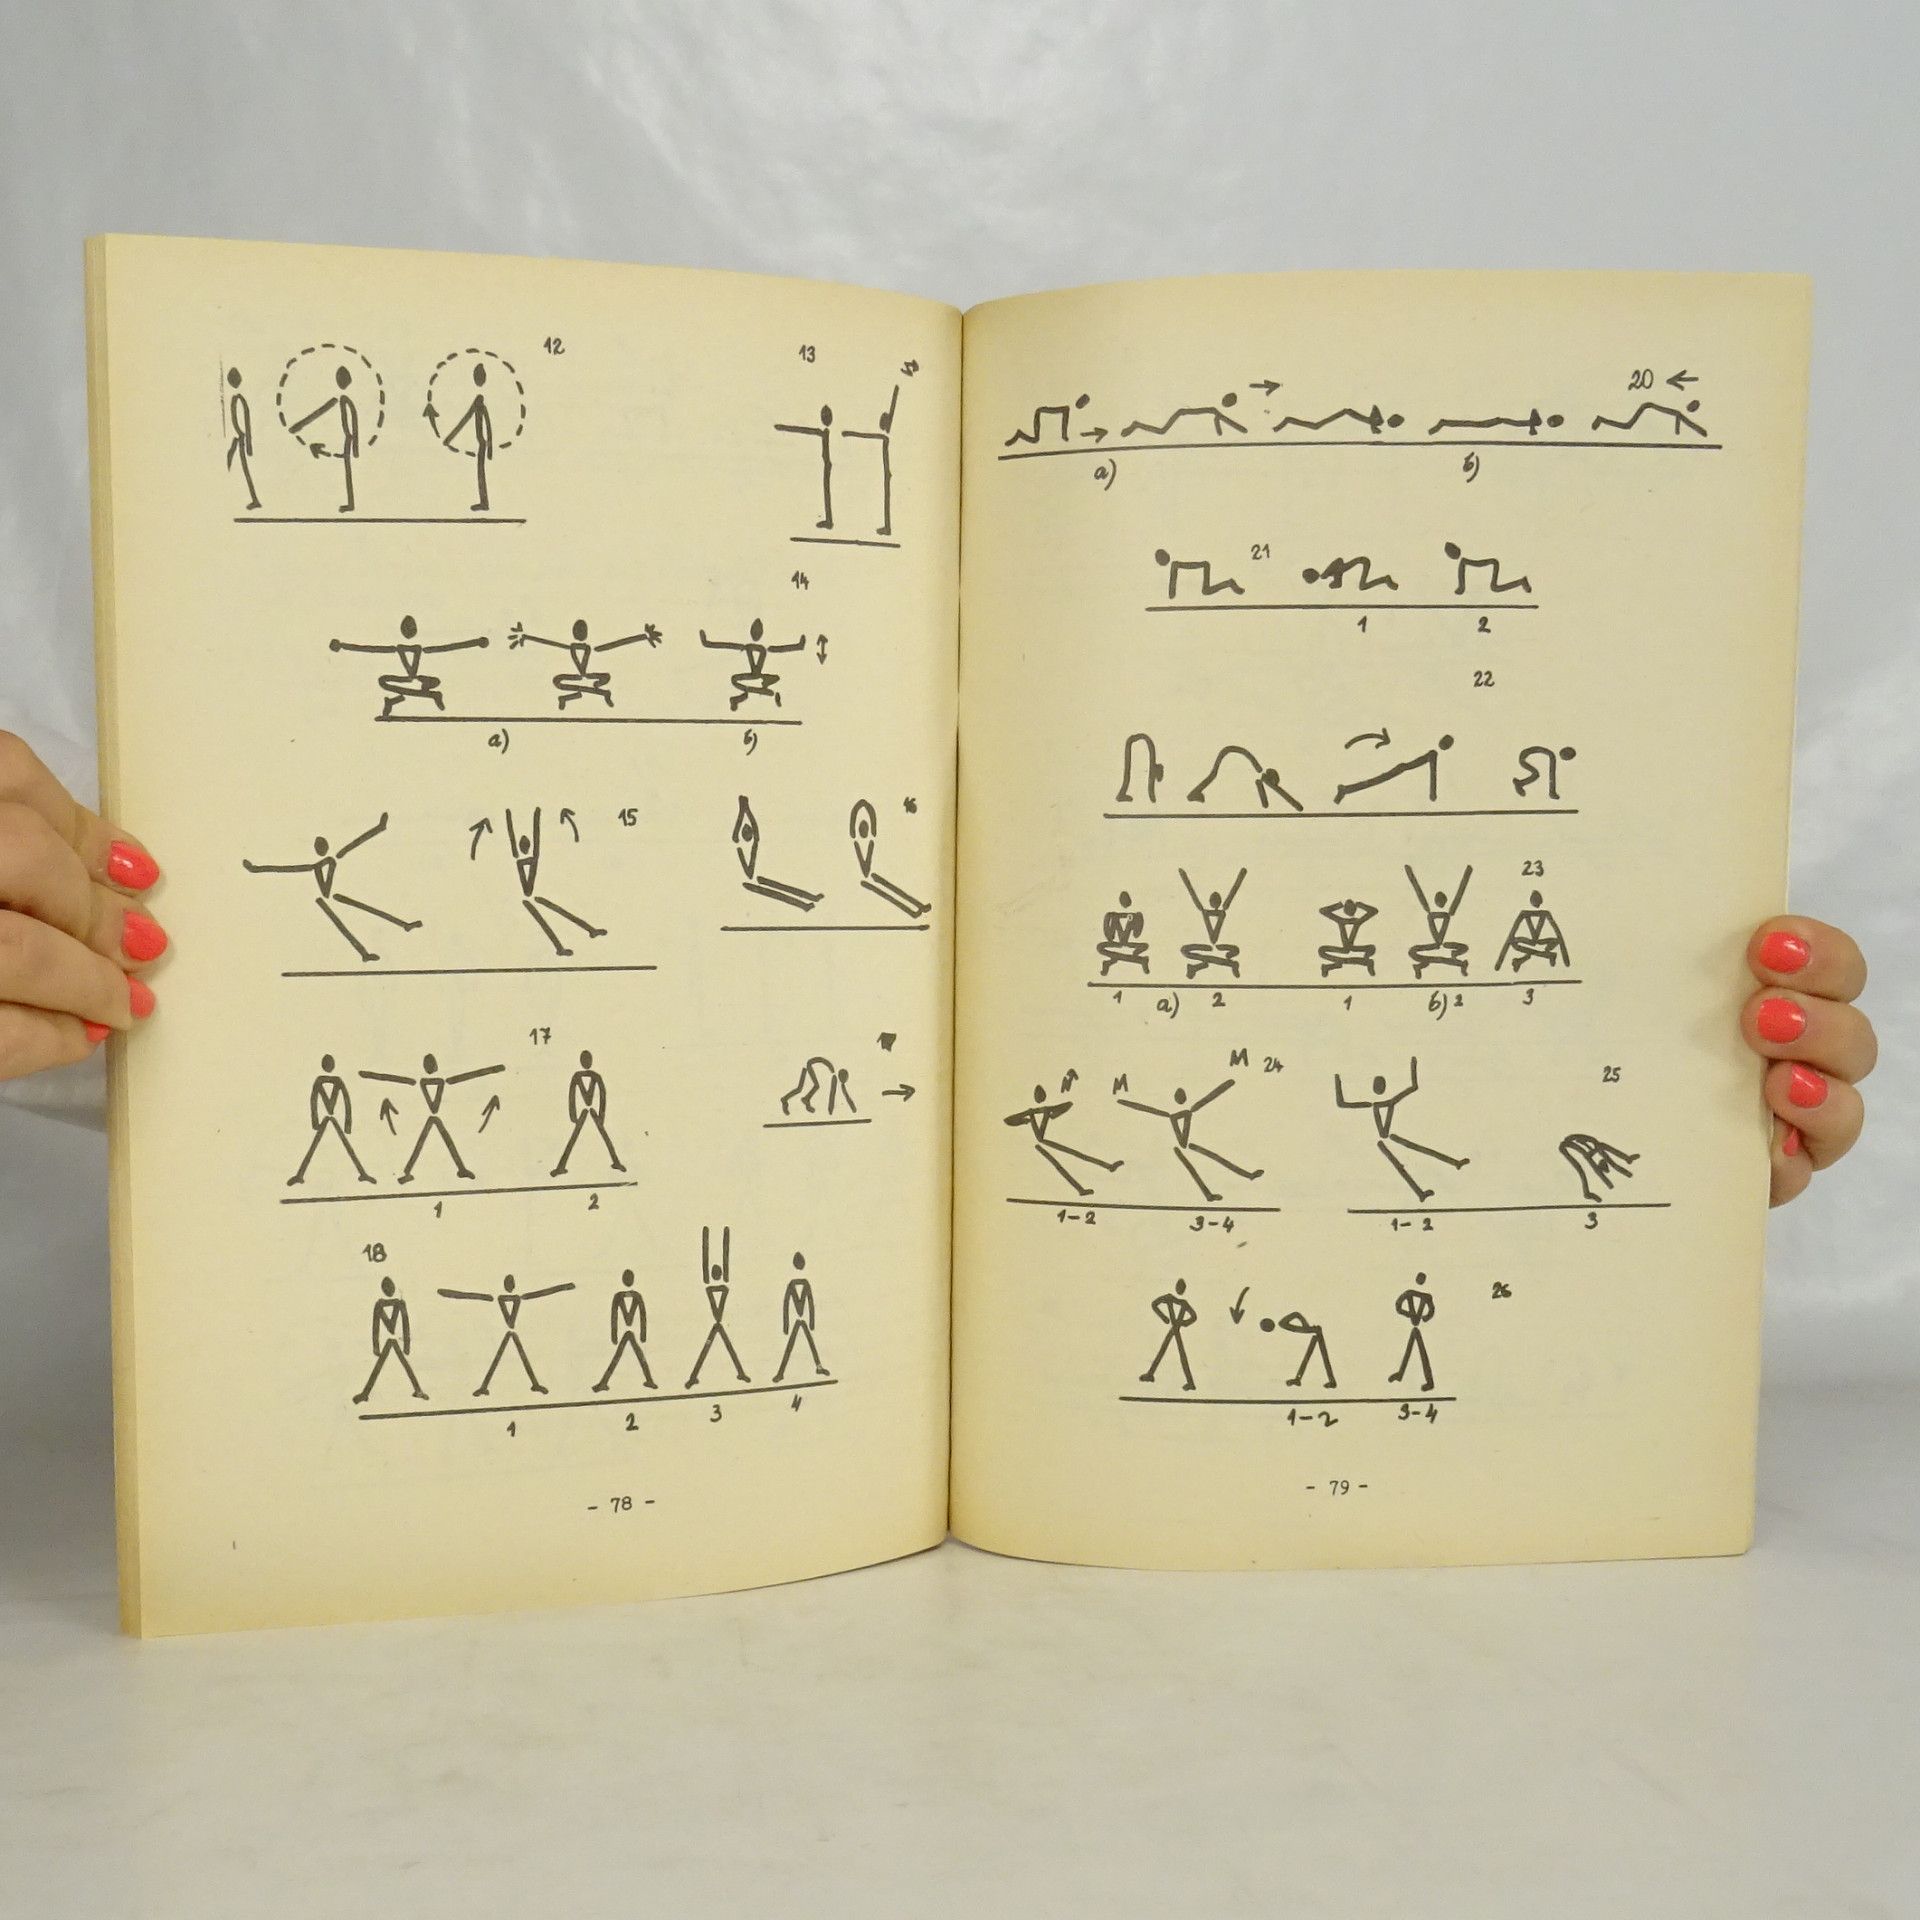 12
13
14
а) б)
15
16
17
1 2
18
1 2 3 4
- 78 -
20
а) б)
21
1 2
22
23
1 а) 2 1 б) 2 3
M M 24
25
1-2 3-4 1-2 3
26
1-2 3-4
- 79 -